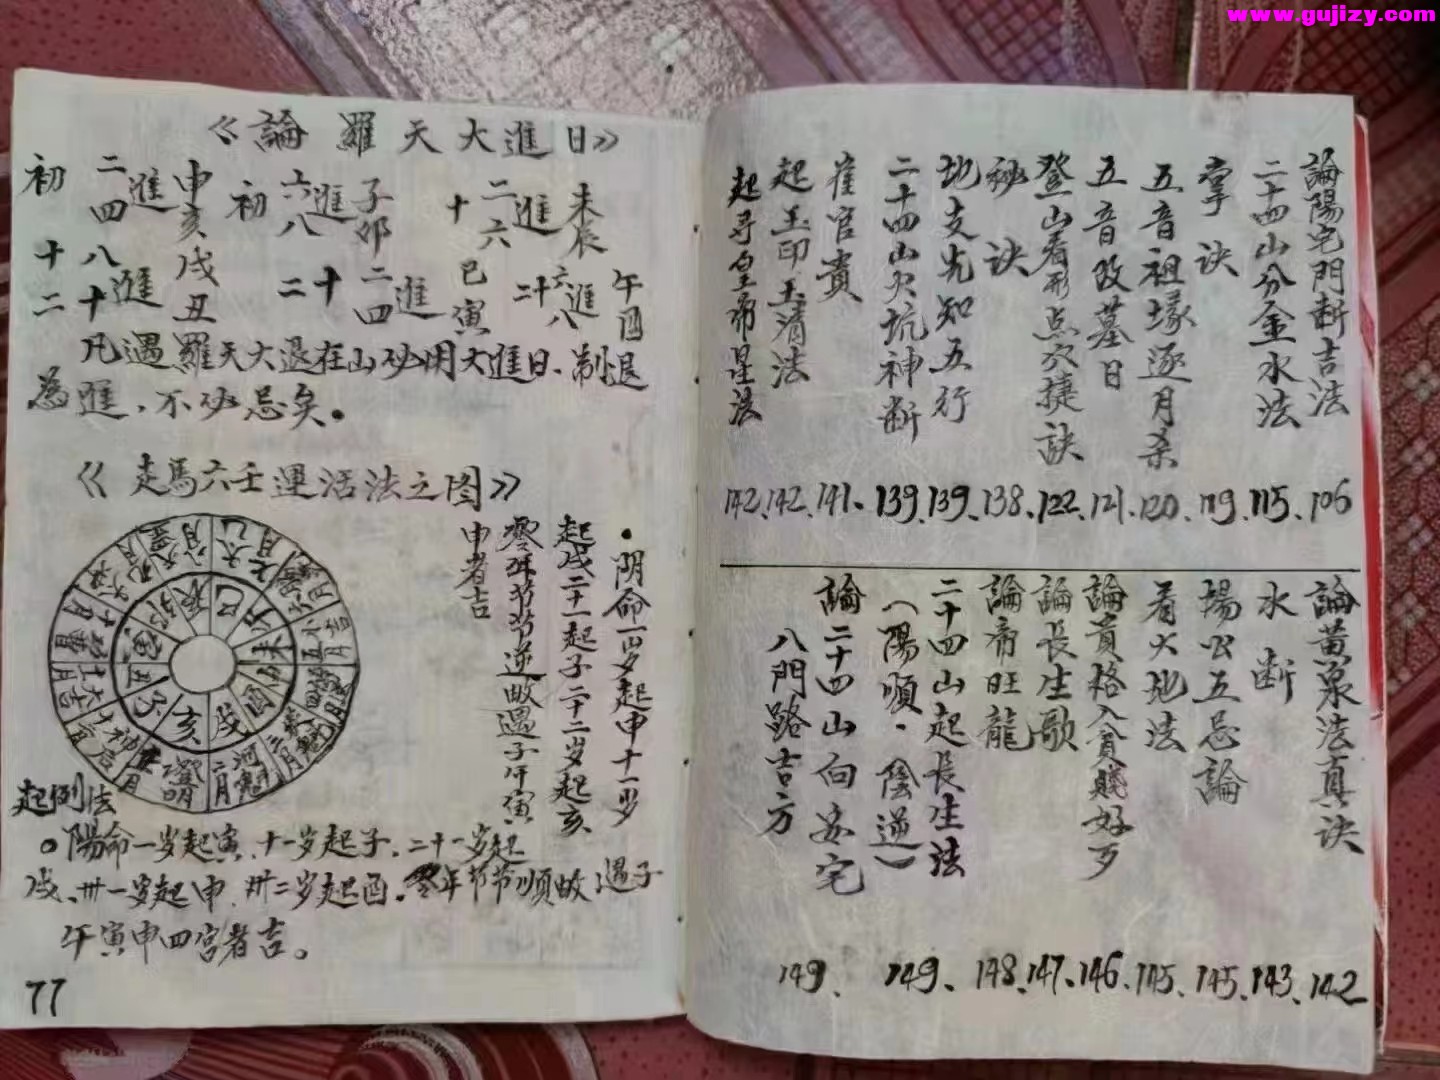 www.gujizy.com
《論羅天大進日》
初 二四 進 申亥 初 六八 進 子卯 十 二六 進 未辰
十二 八十 進 戌丑 二十 二四 進 巳寅 二十 六八 進 午酉
凡遇羅天大退在山必用大進日、制退
為進，不必忌矣。
《走馬六壬運活法之图》
·阴命一岁起申十一岁
起戌二十一起子二十二岁起亥
零年节节逆㫜遇子午寅
申者吉
子
丑
寅
卯
辰
巳
午
未
申
酉
戌
亥
起例法
○陽命一岁起寅、十一岁起子、二十一岁起
戌、卅一岁起申、卅二岁起酉。零年节节順㫜遇子
午寅申四宮者吉。
77
論陽宅門断吉法 106
二十四山分金水法 115、
掌訣 119、
五音祖塚逐月杀 120、
五音改墓日 121、
登山看形点穴捷訣 122、
秘訣 138、
地支先知五行 139、
二十四山火坑神断 139
崔官賁 141、
起玉印玉清法 142、
起寻皇帝星法 142、
論黃泉法真訣 142
水断 143、
楊公五忌論 145、
看火地法 145、
論貴格入貧賤好歹 146、
論長生歌 147、
論帝旺龍 148、
二十四山起長生法
（陽順·陰逆） 149、
論二十四山向安宅
八門路吉方 149、